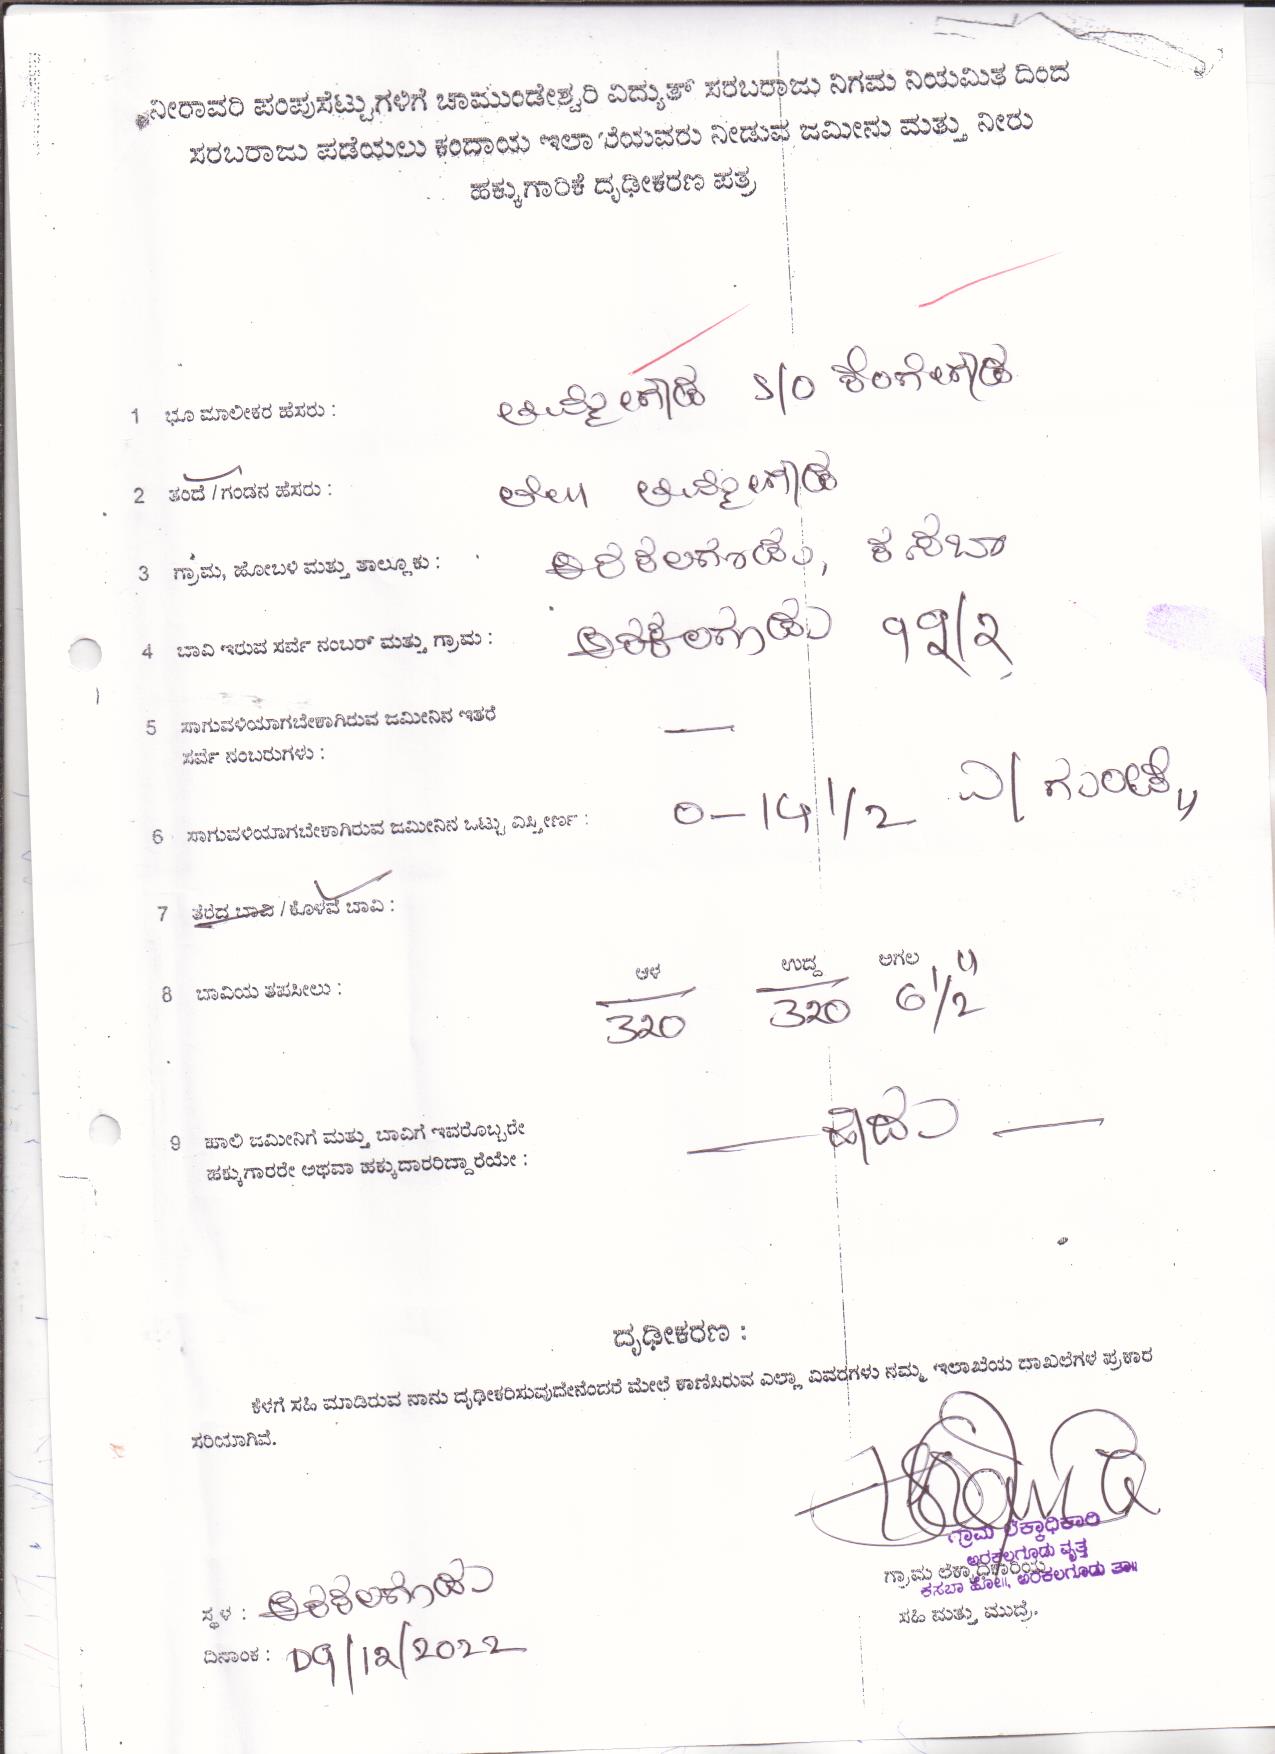 ನೀರಾವರಿ ಪಂಪುಸೆಟ್ಟುಗಳಿಗೆ ಚಾಮುಂಡೇಶ್ವರಿ ವಿದ್ಯುತ್ ಸರಬರಾಜು ನಿಗಮ ನಿಯಮಿತ ದಿಂದ
ಸರಬರಾಜು ಪಡೆಯಲು ಕಂದಾಯ ಇಲಾಖೆಯವರು ನೀಡುವ ಜಮೀನು ಮತ್ತು ನೀರು
ಹಕ್ಕುಗಾರಿಕೆ ದೃಢೀಕರಣ ಪತ್ರ
1 ಭೂ ಮಾಲೀಕರ ಹೆಸರು : S/O
2 ತಂದೆ / ಗಂಡನ ಹೆಸರು :
3 ಗ್ರಾಮ, ಹೋಬಳಿ ಮತ್ತು ತಾಲ್ಲೂಕು : ಅರಕಲಗೂಡು, ಕಸಬಾ
4 ಬಾವಿ ಇರುವ ಸರ್ವೆ ನಂಬರ್ ಮತ್ತು ಗ್ರಾಮ : ಅರಕಲಗೂಡು
5 ಸಾಗುವಳಿಯಾಗಬೇಕಾಗಿರುವ ಜಮೀನಿನ ಇತರೆ —
ಸರ್ವೆ ನಂಬರುಗಳು :
6 ಸಾಗುವಳಿಯಾಗಬೇಕಾಗಿರುವ ಜಮೀನಿನ ಒಟ್ಟು ವಿಸ್ತೀರ್ಣ : 0-14 1/2 ಎ/ ಗುಂಟೆ
7 ತೆರೆದ ಬಾವಿ / ಕೊಳವೆ ಬಾವಿ :
ಆಳ ಉದ್ದ ಅಗಲ
8 ಬಾವಿಯ ತಪಸೀಲು : 320 320 6 1/2 "
9 ಹಾಲಿ ಜಮೀನಿಗೆ ಮತ್ತು ಬಾವಿಗೆ ಇವರೊಬ್ಬರೇ — ಹೌದು —
ಹಕ್ಕುಗಾರರೇ ಅಥವಾ ಹಕ್ಕುದಾರರಿದ್ದಾರೆಯೇ :
ದೃಢೀಕರಣ :
ಕೆಳಗೆ ಸಹಿ ಮಾಡಿರುವ ನಾನು ದೃಢೀಕರಿಸುವುದೇನೆಂದರೆ ಮೇಲೆ ಕಾಣಿಸಿರುವ ಎಲ್ಲಾ ವಿವರಗಳು ನಮ್ಮ ಇಲಾಖೆಯ ದಾಖಲೆಗಳ ಪ್ರಕಾರ
ಸರಿಯಾಗಿವೆ.
ಗ್ರಾಮ ಲೆಕ್ಕಾಧಿಕಾರಿ
ಅರಕಲಗೂಡು ವೃತ್ತ
ಗ್ರಾಮ ಲೆಕ್ಕಾಧಿಕಾರಿಯ
ಕಸಬಾ ಹೋ॥, ಅರಕಲಗೂಡು ತಾ॥
ಸಹಿ ಮತ್ತು ಮುದ್ರೆ.
ಸ್ಥಳ : ಅರಕಲಗೂಡು
ದಿನಾಂಕ : 09/12/2022